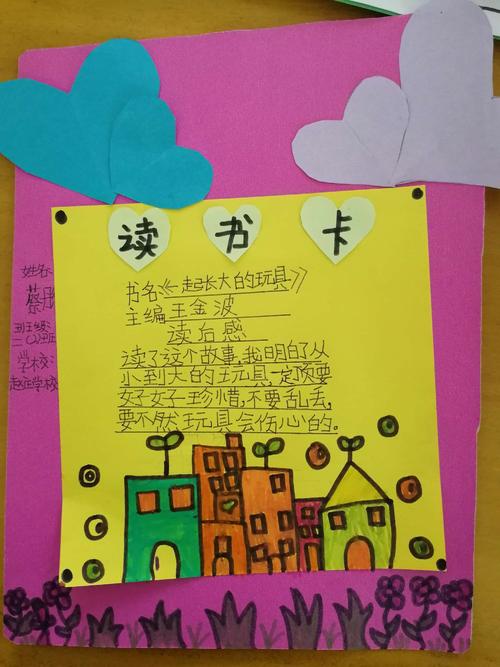 读书卡
书名《一起长大的玩具》
主编王金波
读后感
读了这个故事,我明白了从
小到大的玩具,一定要
好好一珍惜,不要乱丢,
要不然玩具会伤心的。
姓名:
蔡
班级:
二(2)班
学校:
赵庄学校